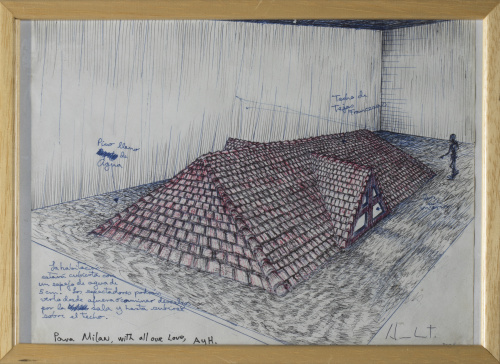 Techo de
Teja
Piso lleno
de
Agua
La habitación
estará cubierta con
un espejo de agua de
5 cm. Los espectadores podrán
verla desde afuera o caminar descalzos
por la sala y hasta subirse
sobre el techo.
Para Milan, with all our Love, A y H.